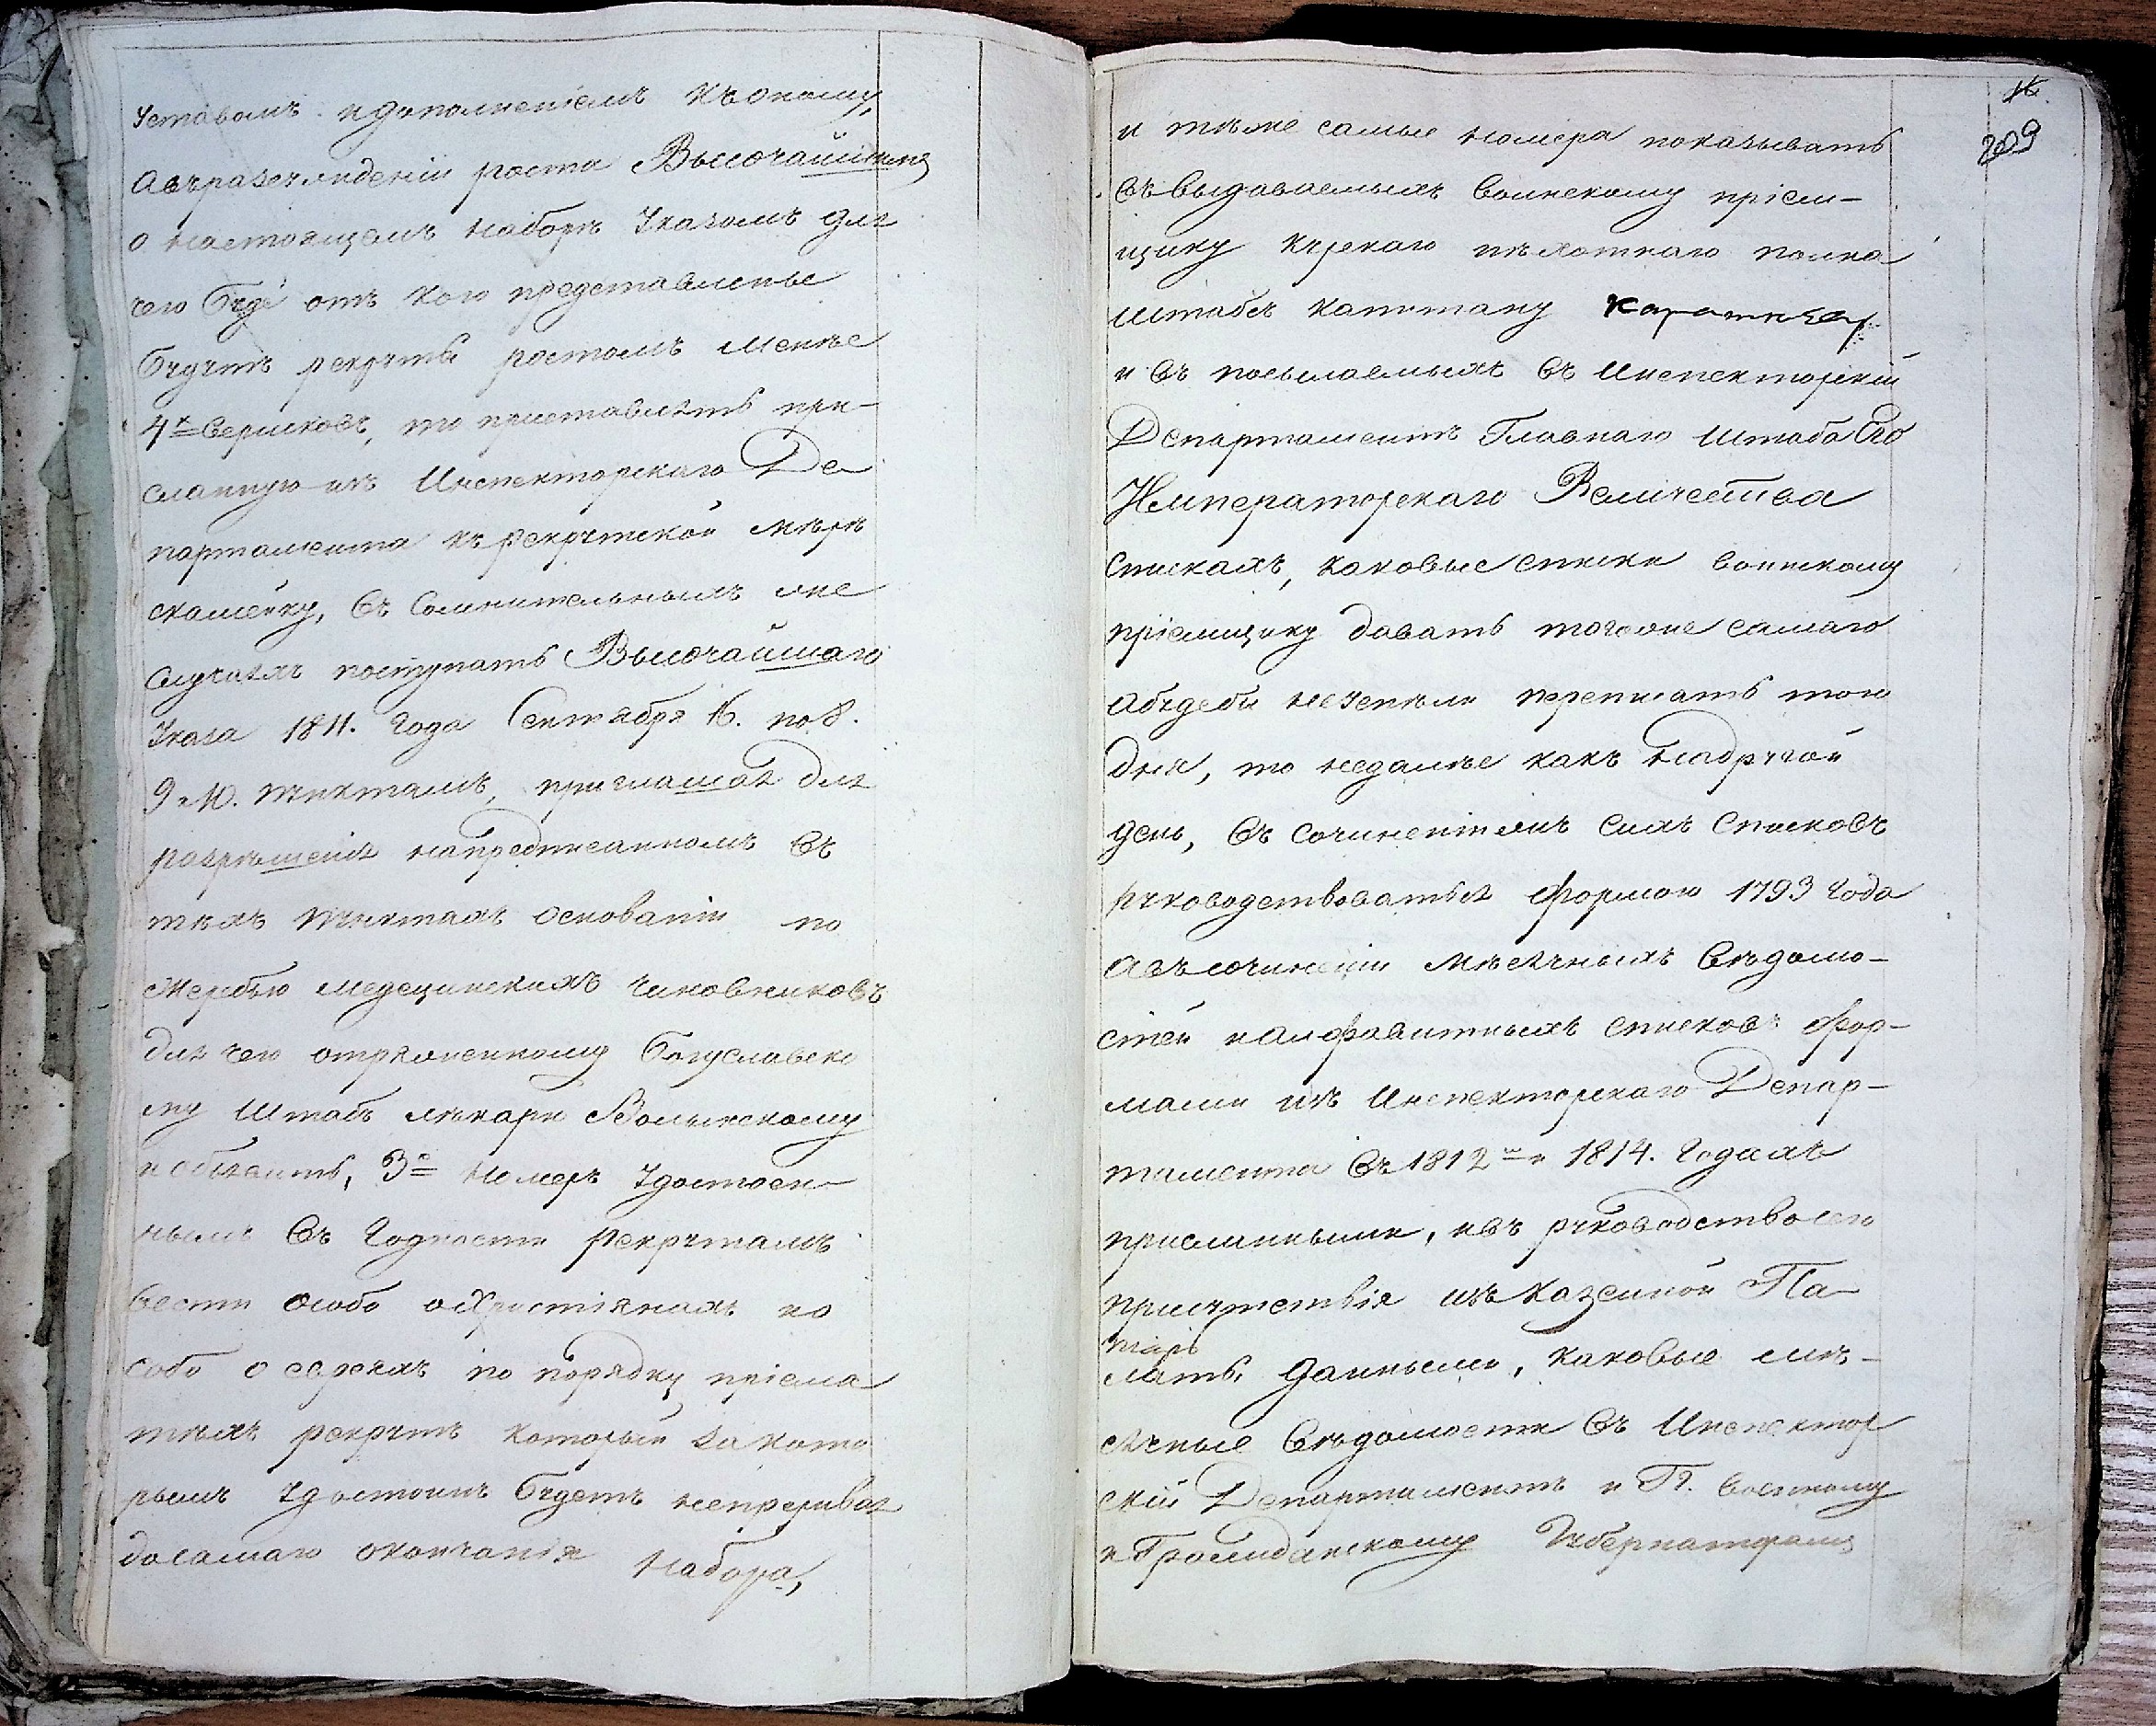 Уставомъ и дополненіемъ къ оному,
а въ разсужденіи роста Высочайшимъ
о настоящемъ наборѣ Указомъ для
чего буде отъ кого представленые
будутъ рекруты ростомъ менѣе
4х вершковъ, то приставлять при-
сланную изъ Инспекторскаго Де
партамента къ рекрутской мѣрѣ
скамейку, въ сомнительныхъ же
случаяхъ поступать Высочайшаго
Указа 1811. года Сентября 16. по 8.
9 и 10. пунктамъ, приглашая для
разрѣшенія на предписанномъ въ
тѣхъ пунктахъ основаніи по
жеребью медецинскихъ чиновниковъ
для чего отряженному Богуславско
му Штабъ лѣкарю Волынскому
и объявить, 3е номеръ удостоен-
нымъ въ годности рекрутамъ
вести особо о Христіянахъ и о
собо о евреяхъ по порядку пріема
тѣхъ рекрутъ который за кото
рымъ удостоинъ будетъ непрерывая
до самаго окончанія набора,
16
209
и тѣже самые номера показывать
въ выдаваемыхъ воинскому пріем-
щику пѣхотнаго полка
Штабсъ Капитану
и въ посылаемыхъ въ Инспекторскій
Департаментъ Главнаго Штаба Его
Императорскаго Величества
спискахъ, каковые списки воинскому
пріемщику давать того же самаго
а буде бы не успѣли переписать того
дня, то недалѣе какъ на другой
день, въ сочиненіи же сихъ списковъ
руководствоваться формою 1793 года
а въ сочиненіи мѣсячныхъ вѣдомо-
стей и алфавитныхъ списковъ фор-
мами изъ Инспекторскаго Депар-
тамента въ 1812м и 1814. годахъ
присланными, и въ руководство сего
присутствія изъ Казенной Па-
латы данными, каковые мѣ-
сячные вѣдомости въ Инспектор
скій Департаментъ и Г. Военному
и Гражданскому Губернаторамъ